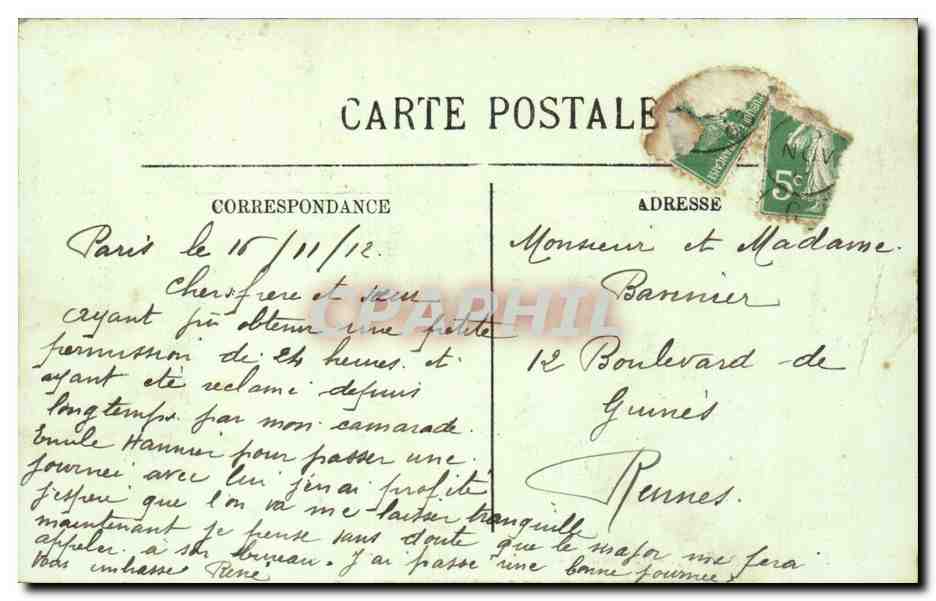 CARTE POSTALE
NOV
5c
CORRESPONDANCE
Paris le 16/11/12.
Chers frere et sœur
ayant pû obtenir une petite
permission de 24 heures et
ayant été reclamé depuis
longtemps par mon camarade
Emile Hannier pour passer une
journeé avec lui j'en ai profité
j'espere que l'on va me laisser tranquille
maintenant je pense sans doute que le major me fera
appeler à son bureau. J'ai passé une bonne journeé
Vous embrasse René
ADRESSE
Monsieur et Madame
Bannier
12 Boulevard de
Guinés
Rennes.
CPAPHIL